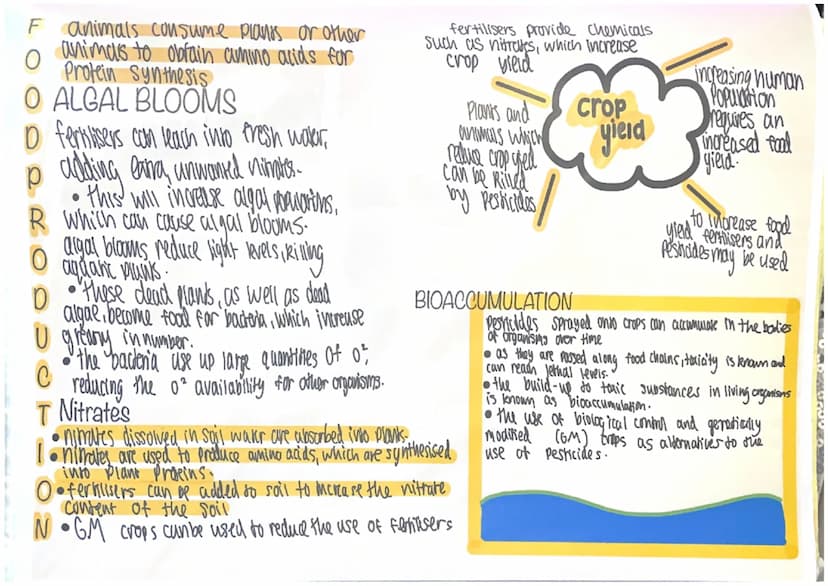 FOOD PRODUCTION
animals consume plants or other
animals to obtain amino acids for
Protein synthesis
ALGAL BLOOMS
fertilisers can leach into fresh water,
adding extra, unwanted nitrates.
• this will increase algal populations,
which can cause algal blooms.
algal blooms reduce light levels, killing
aquatic plants.
• These dead plants, as well as dead
algae, become food for bacteria, which increase
greatly in number.
• the bacteria use up large quantities of O²,
reducing the O² availability for other organisms.
Nitrates
• nitrates dissolved in soil water are absorbed into plants.
• nitrates are used to produce amino acids, which are synthesised
into plant proteins.
• fertilisers can be added to soil to increase the nitrate
content of the soil
• GM crops can be used to reduce the use of fertilisers
fertilisers provide chemicals
such as nitrates, which increase
crop yield
crop
yield
increasing human
population
requires an
increased food
yield.
Plants and
animals which
reduce crop yield
can be killed
by pesticides
to increase food
yield fertilisers and
pesticides may be used
BIOACCUMULATION
pesticides sprayed onto crops can accumulate in the bodies
of organisms over time
• as they are passed along food chains, toxicity is known and
can reach lethal levels.
• the build-up to toxic substances in living organisms
is known as bioaccumulation.
• the use of biological control and genetically
modified (GM) crops as alternatives to the
use of pesticides.